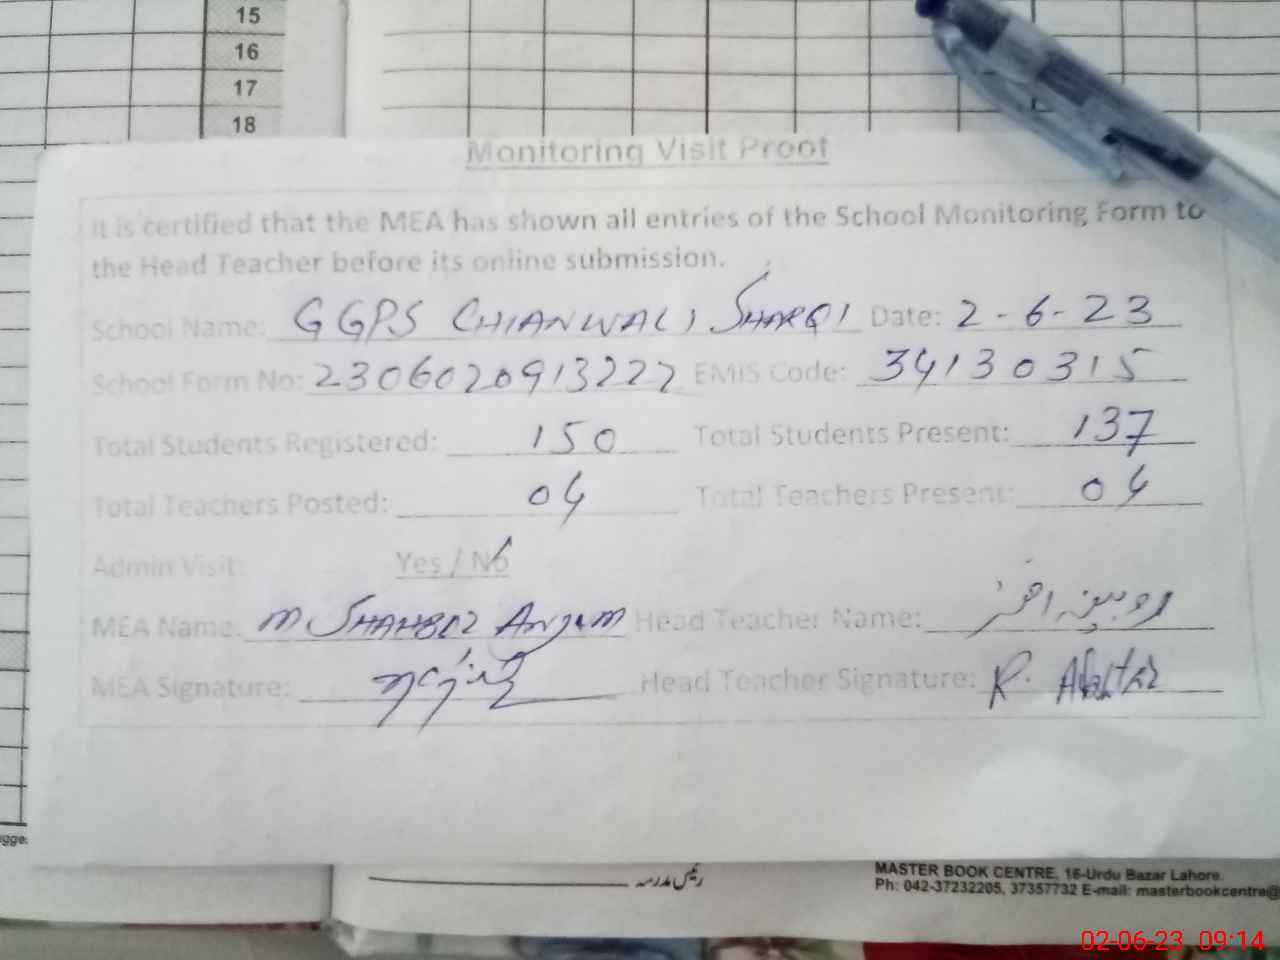 15
16
17
18
Monitoring Visit Proof
It is certified that the MEA has shown all entries of the School Monitoring Form to
the Head Teacher before its online submission.
School Name: GGPS CHIANWALI SHARQI Date: 2-6-23
School Form No: 2306020913222 EMIS Code: 34130315
Total Students Registered: 150 Total Students Present: 137
Total Teachers Posted: 04 Total Teachers Present: 04
Admin Visit: Yes / No
MEA Name: M SHAHBAZ ANJUM Head Teacher Name: روبینہ اختر
MEA Signature: Head Teacher Signature: R. Akhtar
رئیس مدرسہ
MASTER BOOK CENTRE, 16-Urdu Bazar Lahore.
Ph: 042-37232205, 37357732 E-mail: masterbookcentre@
02-06-23 09:14